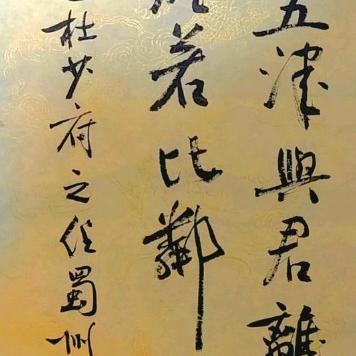 五津與君離
若比鄰
杜少府之任蜀州